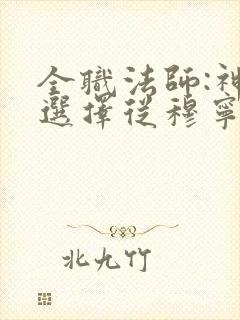 全職法師:神
選擇從穆寧
北九竹